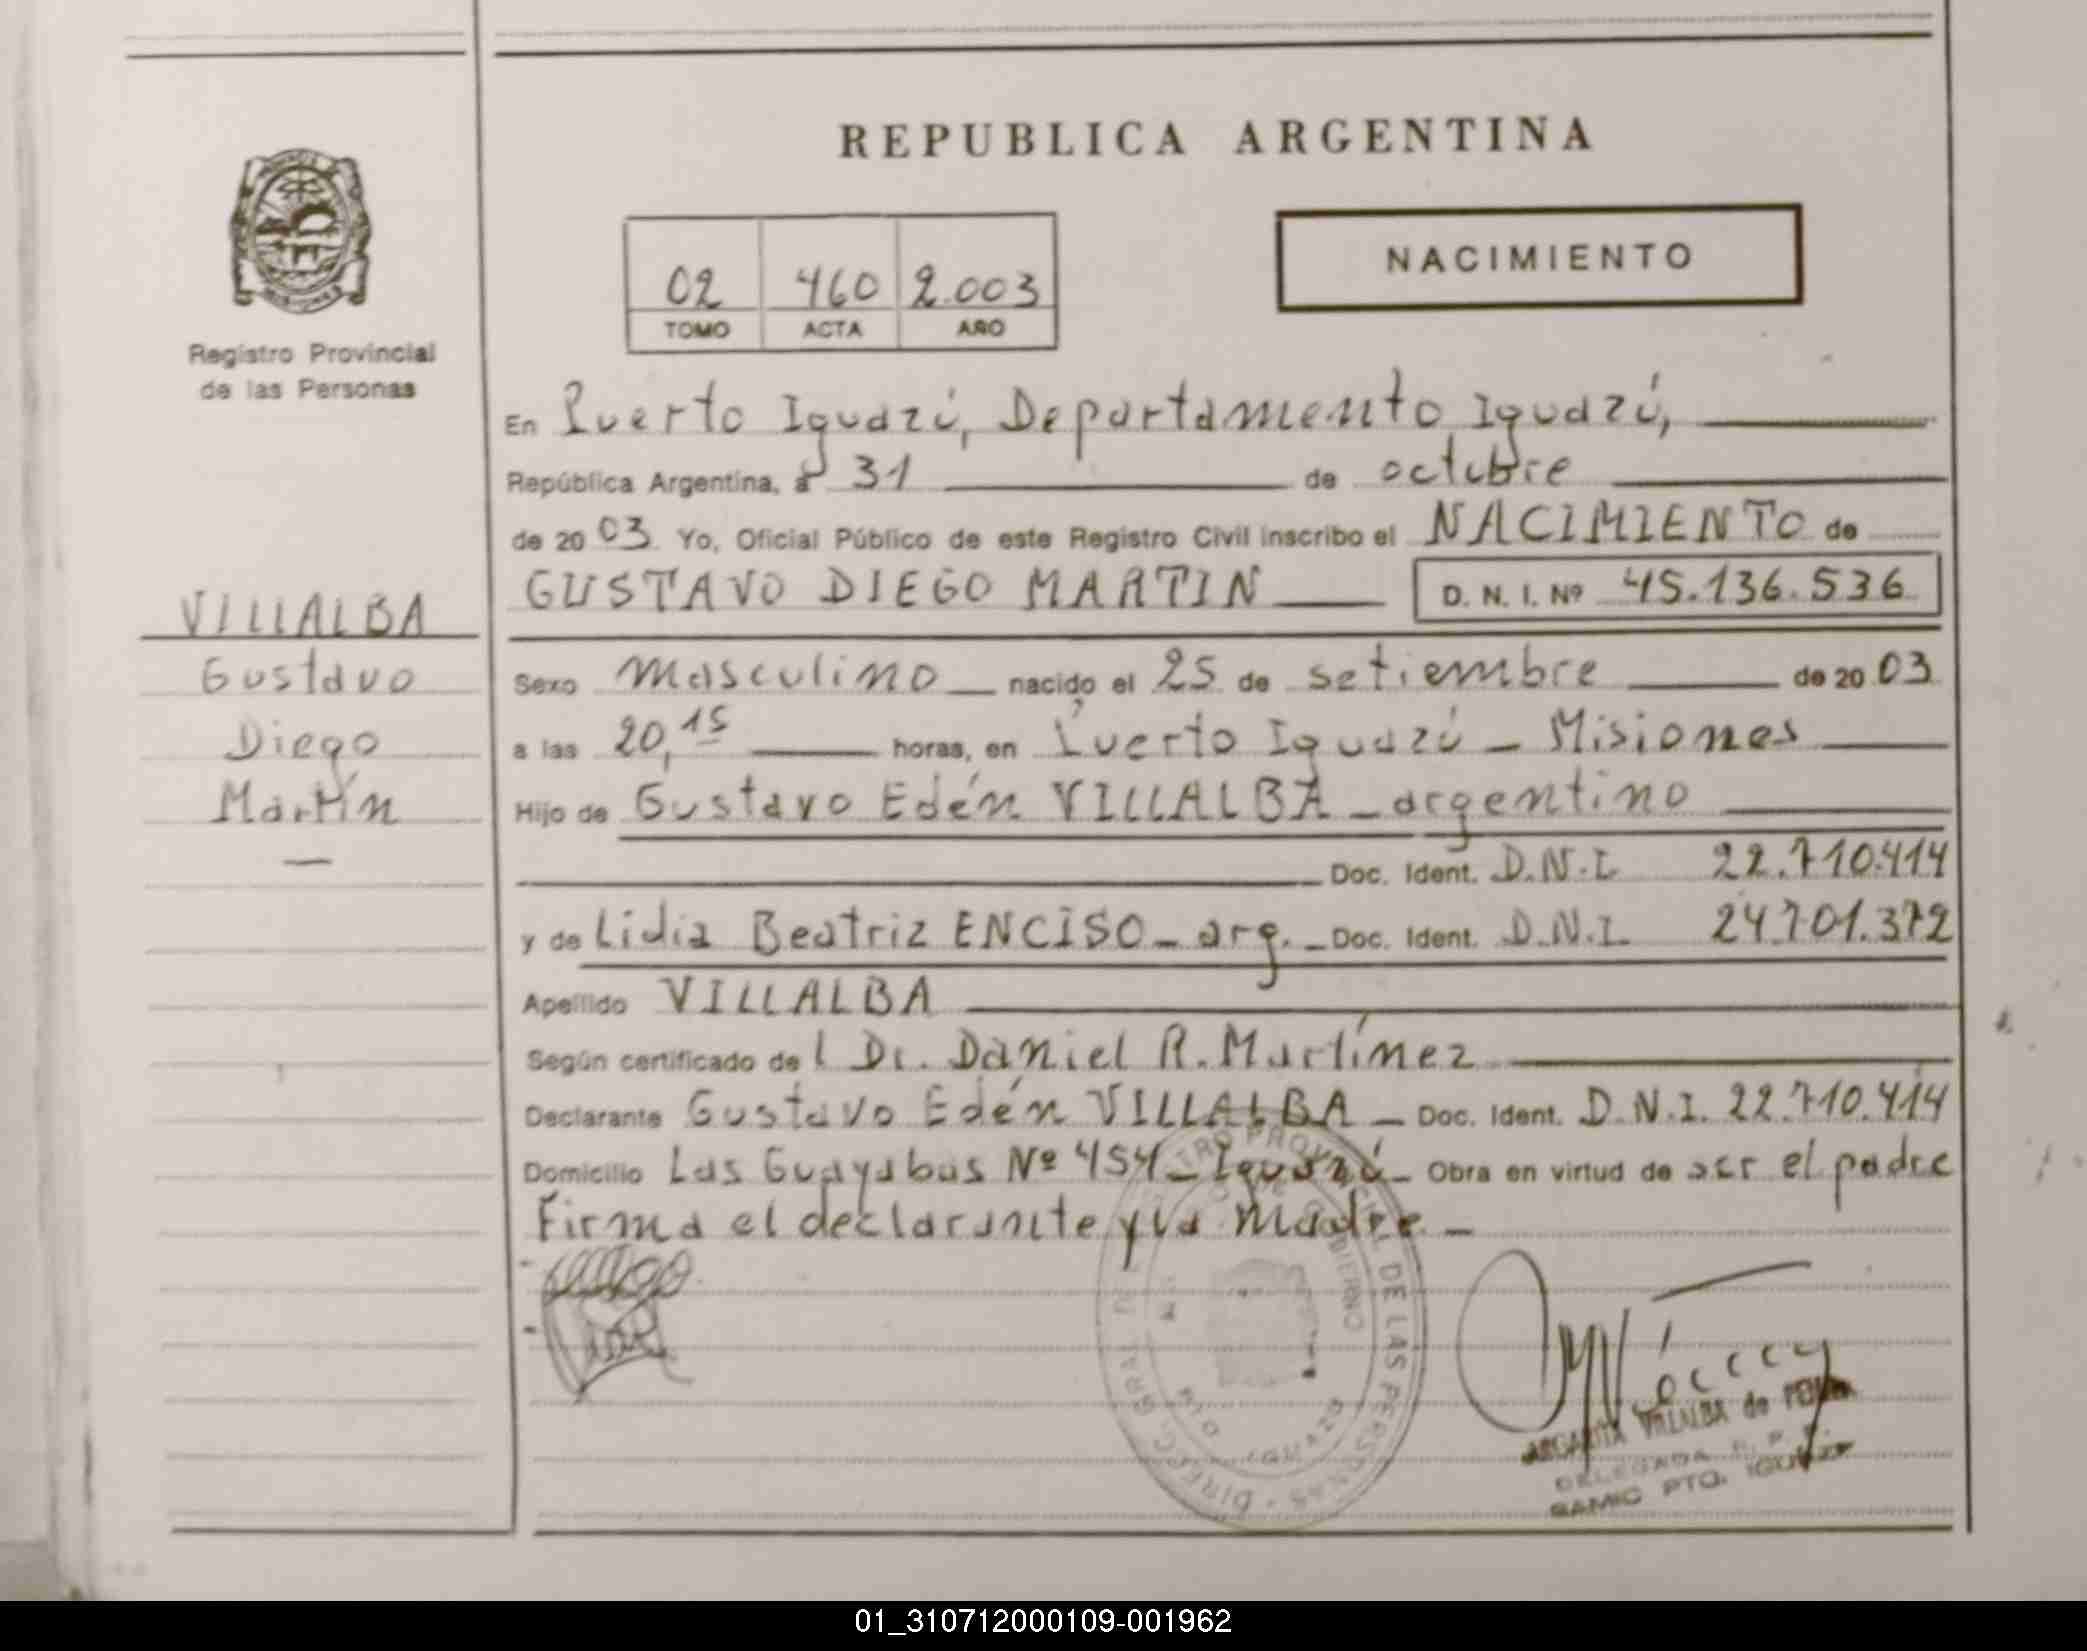 REPUBLICA ARGENTINA
NACIMIENTO
02 460 2.003
TOMO ACTA AÑO
Registro Provincial
de las Personas
En Puerto Iguazú, Departamento Iguazú,
República Argentina, a 31 de octubre
de 2003 Yo, Oficial Público de este Registro Civil inscribo el NACIMIENTO de
GUSTAVO DIEGO MARTIN D. N. I. Nº 45.136.536
VILLALBA
Gustavo
Diego
Martín
Sexo masculino nacido el 25 de setiembre de 2003
a las 20,15 horas, en Puerto Iguazú - Misiones
Hijo de Gustavo Edén VILLALBA - argentino
Doc. Ident. D.N.I. 22.710.414
y de Lidia Beatriz ENCISO - arg. - Doc. Ident. D.N.I. 24.701.372
Apellido VILLALBA
Según certificado de l Dr. Daniel R. Martínez
Declarante Gustavo Edén VILLALBA - Doc. Ident. D.N.I. 22.710.414
Domicilio Las Guayabas Nº 454 - Iguazú - Obra en virtud de ser el padre
Firma el declarante y la Madre -
DIRECC. GRAL. DE LAS PERSONAS
VILLALBA de
DELEGADA R. P. P.
SAMIC PTO. IGUAZU
01_310712000109-001962